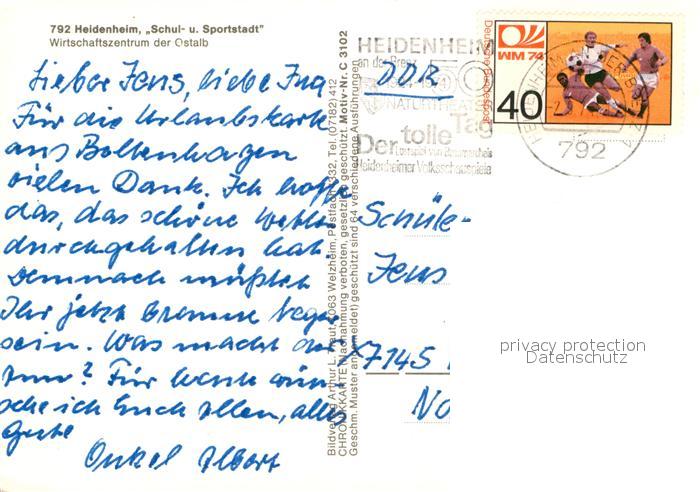 792 Heidenheim, „Schul- u. Sportstadt"
Wirtschaftszentrum der Ostalb
Lieber Jens, liebe Ina
Für die Urlaubskarte
aus Boltenhagen
vielen Dank. Ich hoffe
das, das schöne Wetter
durchgehalten hat
Demnach müßtet
Ihr jetzt braune Neger
sein. Was macht
? Für heute wün
sche ich Euch allen, alles
Gute
Onkel Albert
Bildverlag Arthur L. Traut, 7063 Welzheim, Postfach 332, Tel. (07182) 412
CHROMKARTE Nachnahmung verboten, gesetzlich geschützt. Motiv-Nr. C 3102
Geschm. Muster angemeldet) geschützt sind 64 verschiedene Ausführungen
HEIDENHEIM
an der Brenz
DDR
NATURTHEATER
Der tolle Tag
Lustspiel von
Heidenheimer Volksschauspiele
WM 74
Deutsche Bundespost
40
HEIDENHEIM
792
Schüle-
Jens
7145
No
privacy protection
Datenschutz